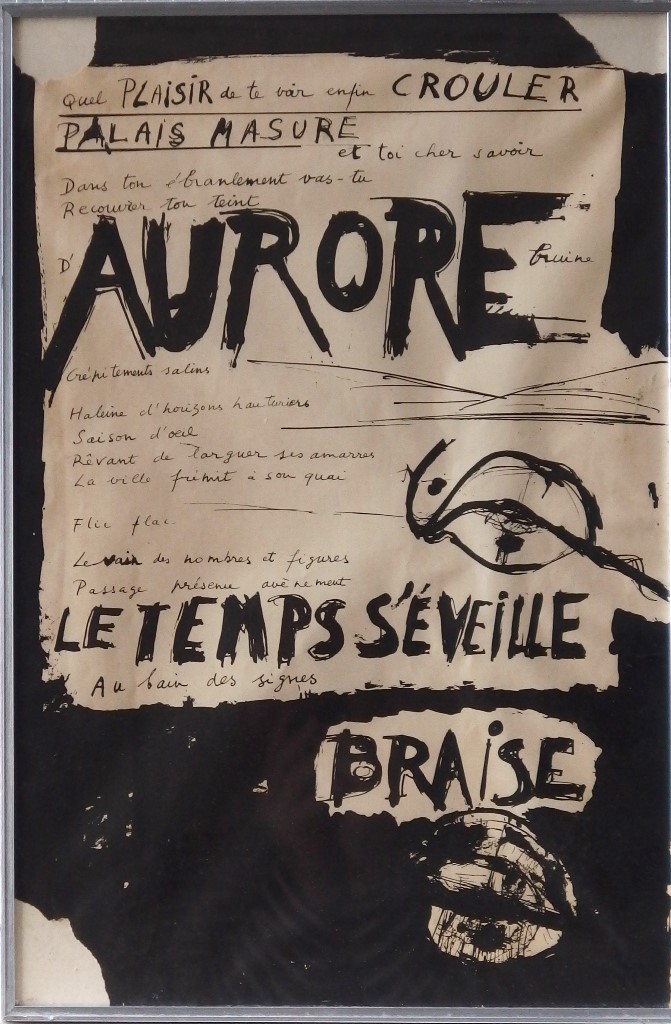 Quel PLAISIR de te voir enfin CROULER
PALAIS MASURE
et toi cher savoir
Dans ton ébranlement vas-tu
Recouvrer ton teint
D'AURORE bruine
Crépitements salins
Haleine d'horizons hauturiers
Saison d'oeil
Rêvant de larguer ses amarres
La ville frémit à son quai
Flic flac
Le vain des nombres et figures
Passage présence avènement
LE TEMPS S'ÉVEILLE
Au bain des signes
BRAISE